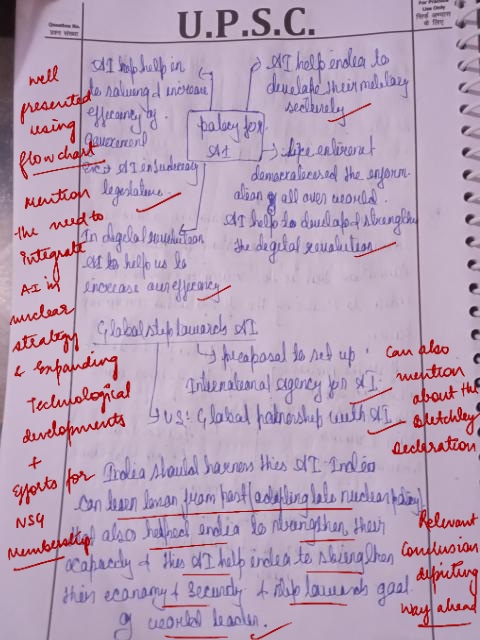 Question No.
प्रश्न संख्या
U.P.S.C.
For Practice
Use Only
सिर्फ अभ्यास
के लिए
AI help in
increase
efficiency of
government
AI help india to
securely
policy for
AI
AI in
legislature
like
democratized the inform-
ation all over world.
AI help to develop & strengthen
the degital revolution
In degital revolution
AI to help us to
increase our efficency
well
presented
using
flowchart
mention
the need to
integrate
AI in
nuclear
strategy
& Expanding
Technological
developments
+
Efforts for
NSG
Membership
Global step towards AI
↳ proposal to set up
International agency for AI.
↳ US: Global patnership with AI.
Can also
mention
about the
Bletchley
Declaration
India should harness this AI. India
can learn from past adopting late nuclear policy
also helped india to strengthen their
& this AI help india to strengthen
their economy & security & step towards goal
of world leader.
Relevant
Conclusion
depicting
way ahead